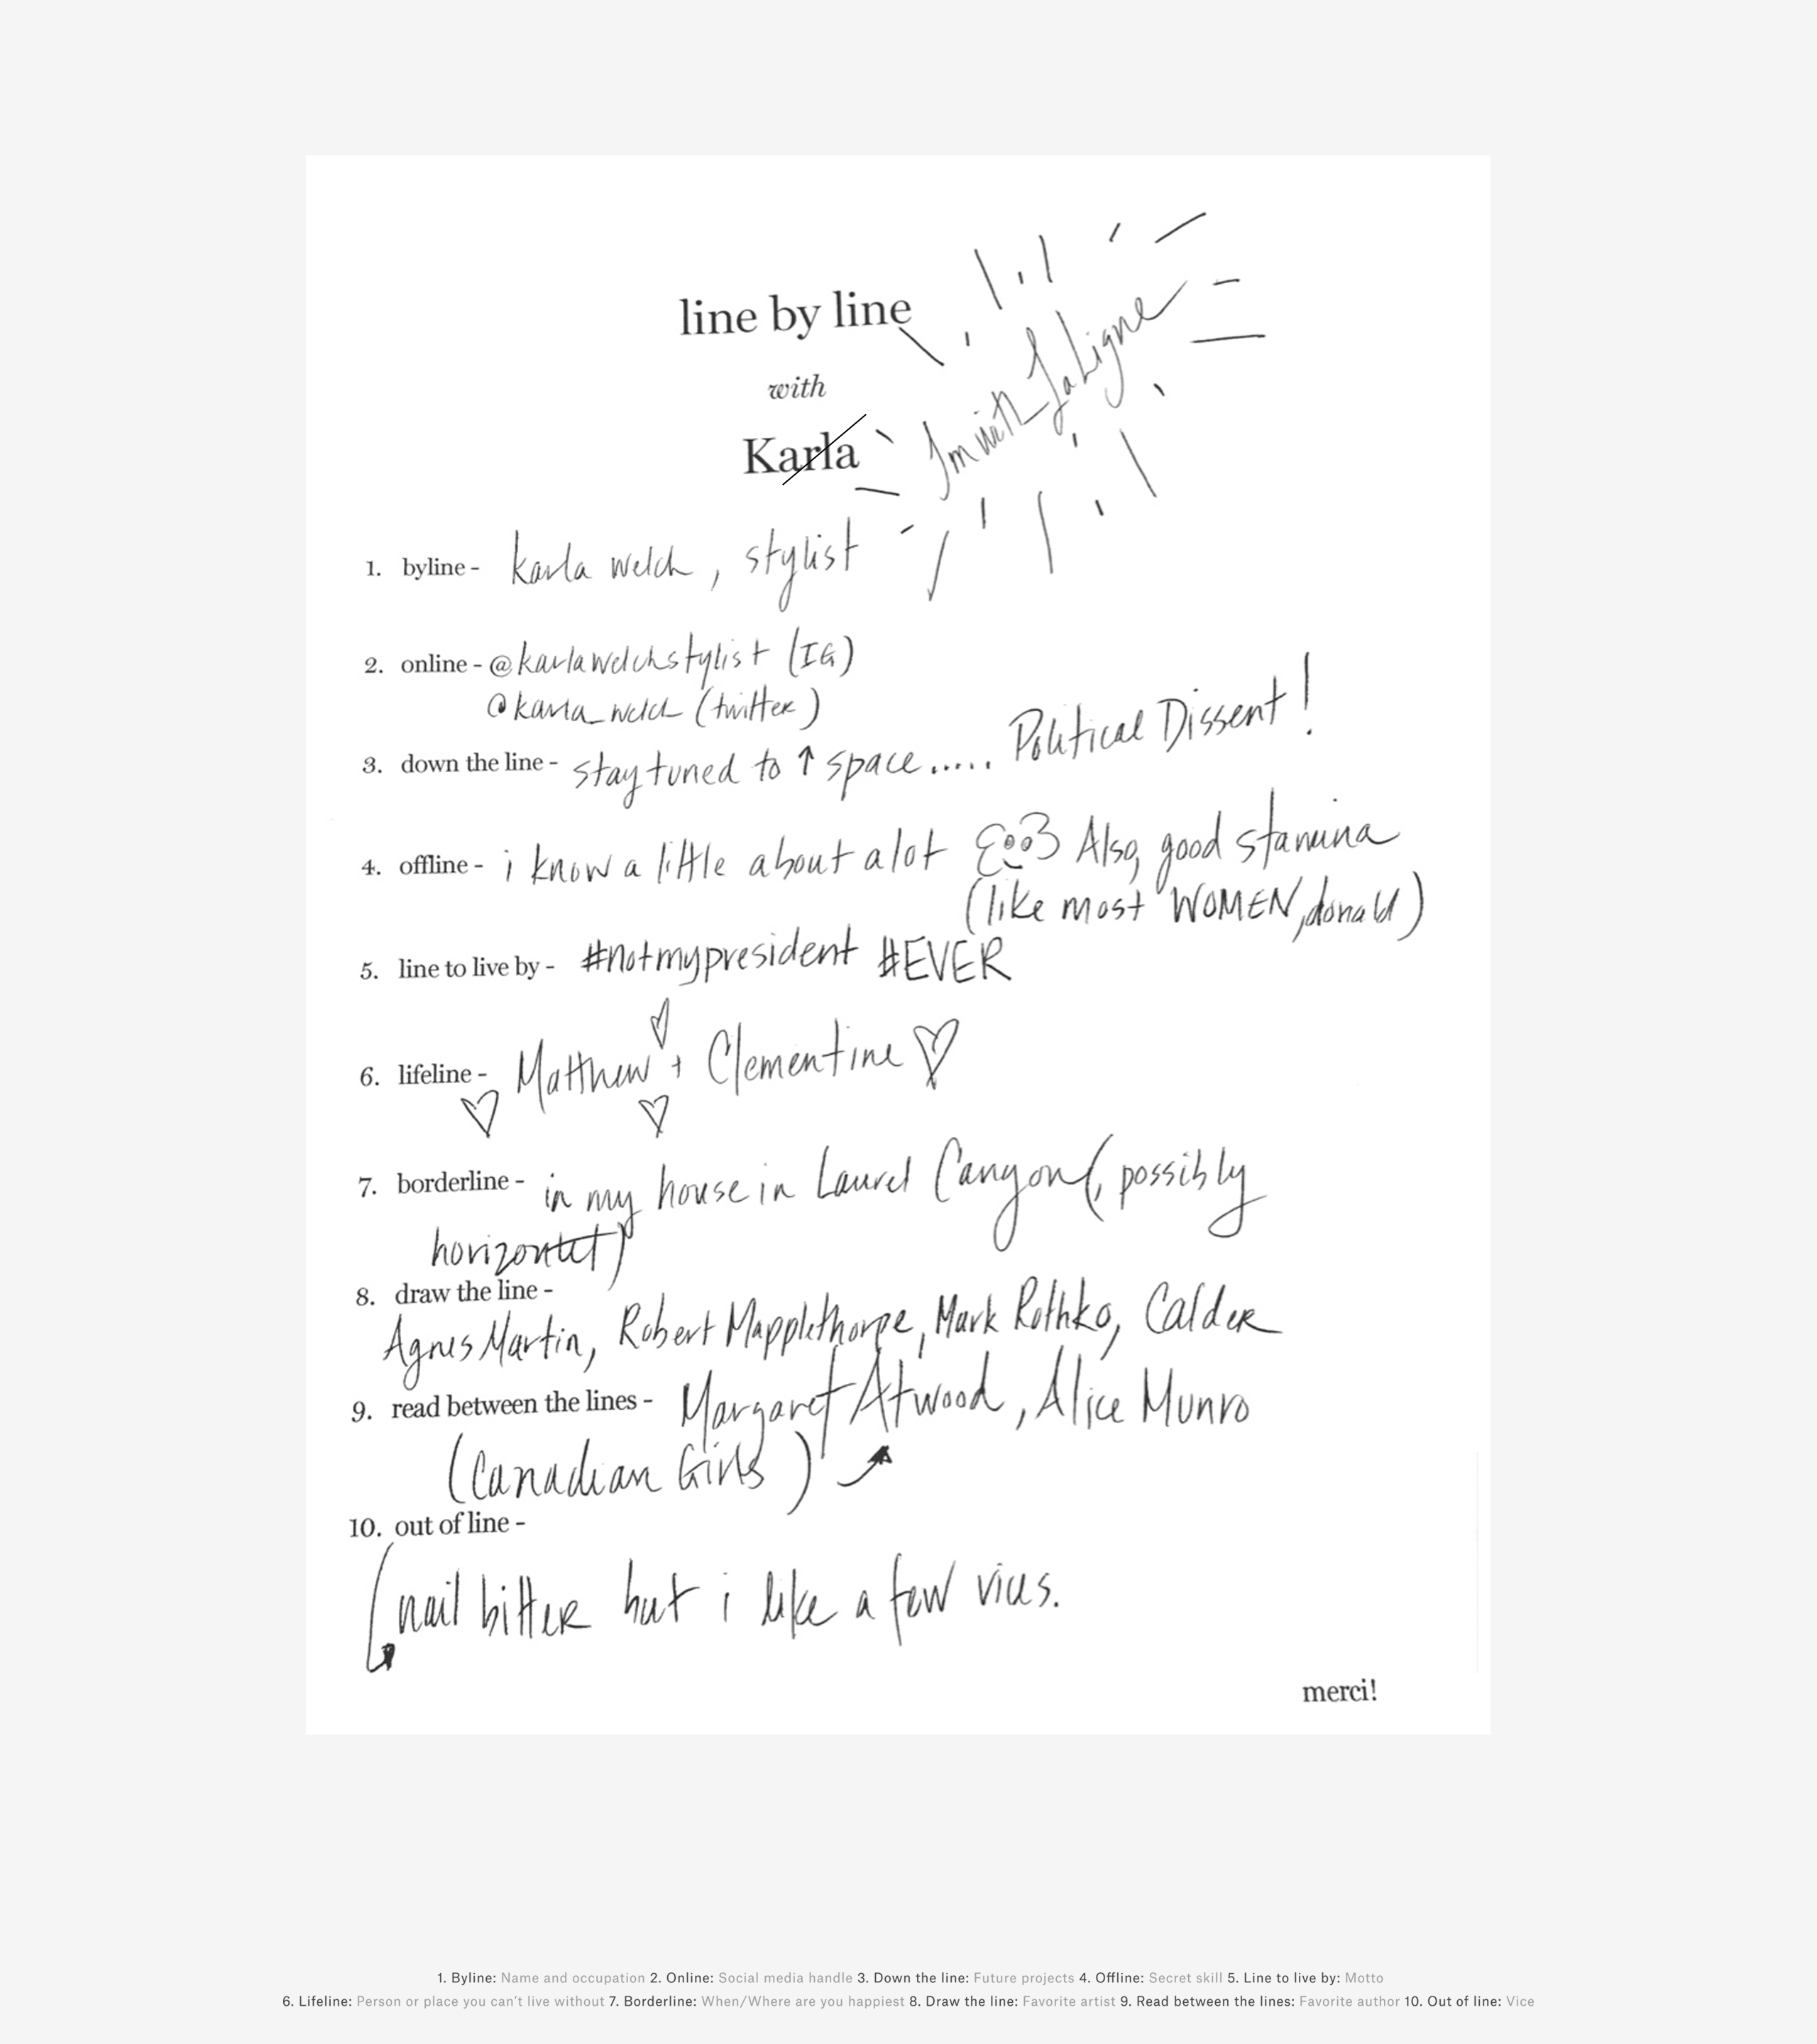 line by line
with
Karla
I'm with LaLigne
1. byline - karla welch, stylist
2. online - @karlawelchstylist (IG)
@karla_welch (twitter)
3. down the line - stay tuned to ↑ space..... Political Dissent!
4. offline - i know a little about alot Also, good stamina
(like most WOMEN, donald)
5. line to live by - #notmypresident #EVER
6. lifeline - Matthew + Clementine
7. borderline - in my house in Laurel Canyon (, possibly
horizontal)
8. draw the line -
Agnes Martin, Robert Mapplethorpe, Mark Rothko, Calder
9. read between the lines - Margaret Atwood, Alice Munro
(Canadian Girls)
10. out of line -
nail bitter but i like a few vices.
merci!
1. Byline: Name and occupation 2. Online: Social media handle 3. Down the line: Future projects 4. Offline: Secret skill 5. Line to live by: Motto
6. Lifeline: Person or place you can't live without 7. Borderline: When/Where are you happiest 8. Draw the line: Favorite artist 9. Read between the lines: Favorite author 10. Out of line: Vice